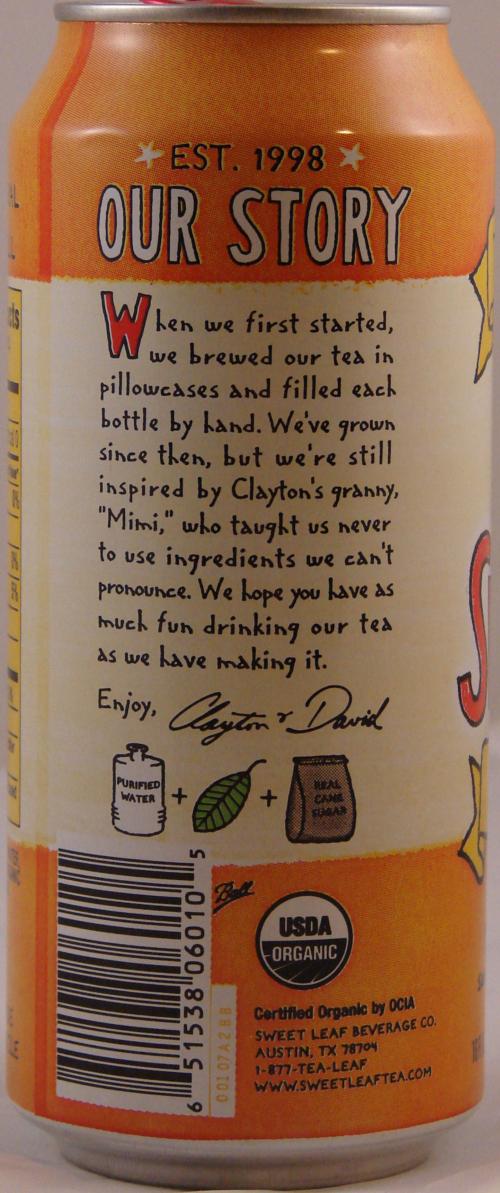 EST. 1998
OUR STORY
When we first started,
we brewed our tea in
pillowcases and filled each
bottle by hand. We've grown
since then, but we're still
inspired by Clayton's granny,
"Mimi," who taught us never
to use ingredients we can't
pronounce. We hope you have as
much fun drinking our tea
as we have making it.
Enjoy, Clayton & David
PURIFIED
WATER
+
+
REAL
CANE
SUGAR
6 51538 06010 5
Ball
00107A288
USDA
ORGANIC
Certified Organic by OCIA
SWEET LEAF BEVERAGE CO.
AUSTIN, TX 78704
1-877-TEA-LEAF
WWW.SWEETLEAFTEA.COM